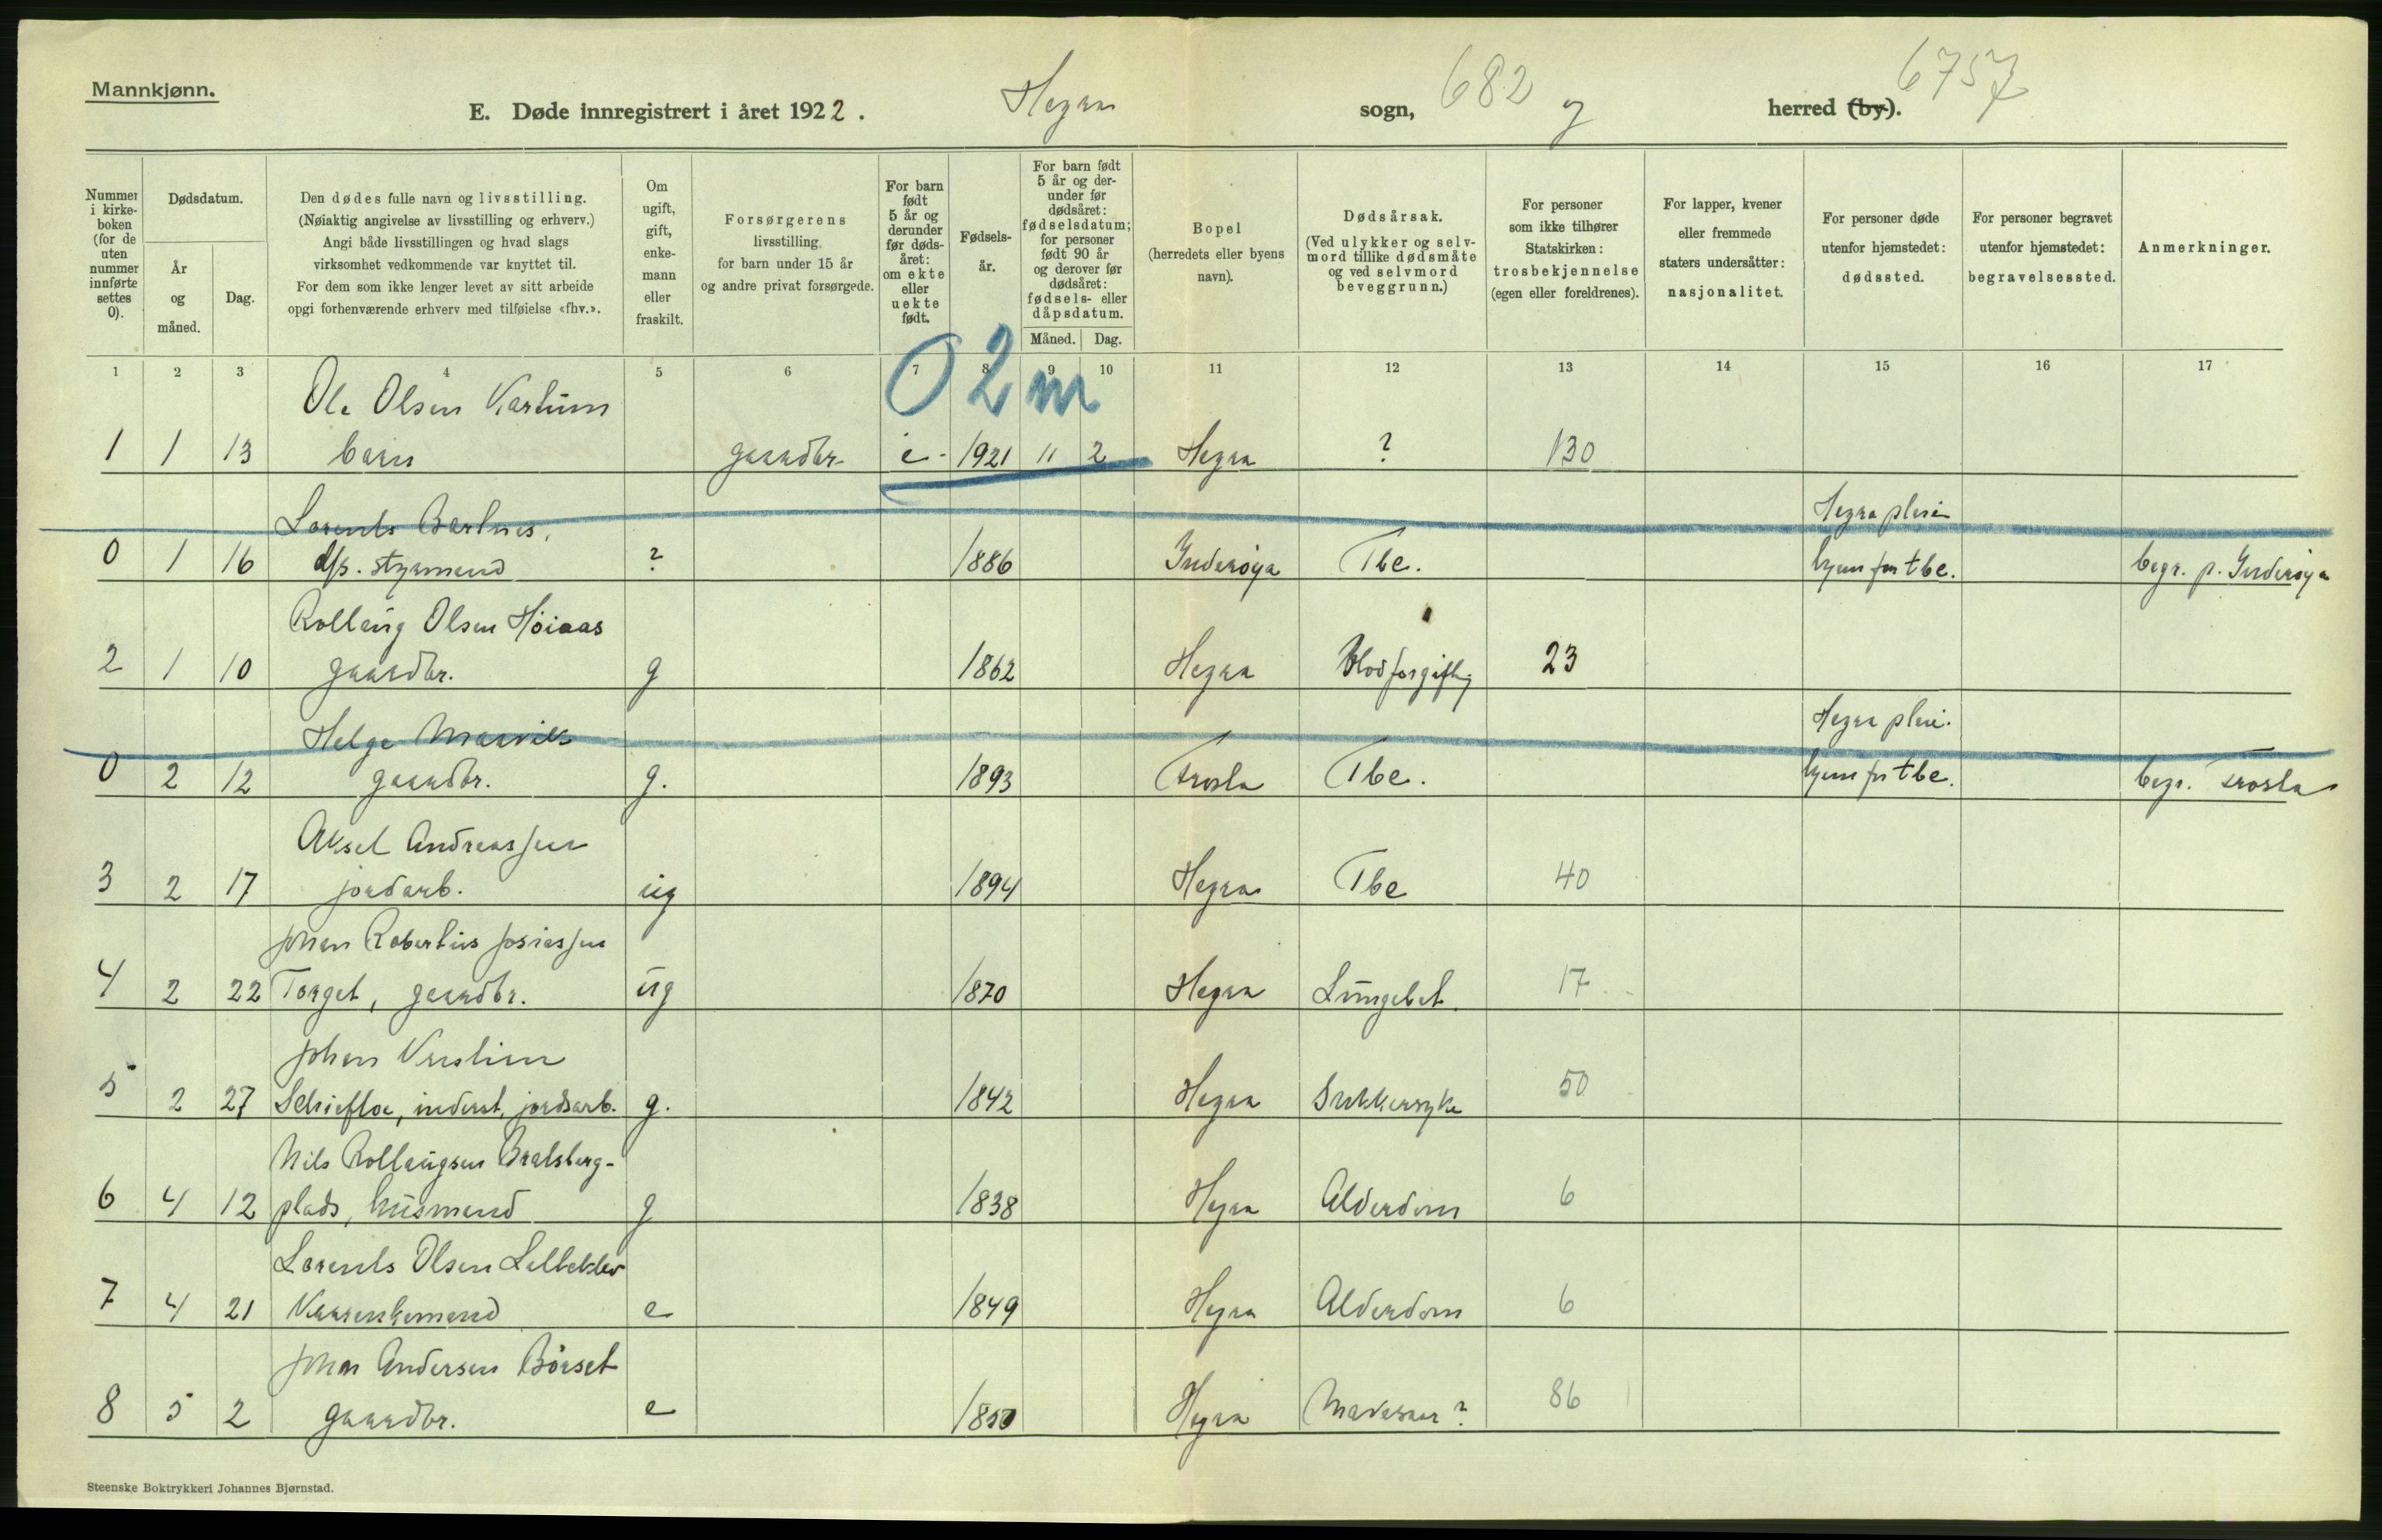 Mannkjønn.
E. Døde innregistrert i året 1922. Hegra sogn, 682 og herred (by). 6757
Nummer i kirkeboken (for de uten nummer innførte settes 0).
Dødsdatum.
År og måned.
Dag.
Den dødes fulle navn og livsstilling.
(Nøiaktig angivelse av livsstilling og erhverv.)
Angi både livsstillingen og hvad slags
virksomhet vedkommende var knyttet til.
For dem som ikke lenger levet av sitt arbeide
opgi forhenværende erhverv med tilføielse «fhv.».
Om ugift, gift, enkemann eller fraskilt.
Forsørgerens
livsstilling
for barn under 15 år
og andre privat forsørgede.
For barn født 5 år og derunder før dødsåret: om ekte eller uekte født.
Fødselsår.
For barn født 5 år og derunder før dødsåret: fødselsdatum; for personer født 90 år og derover før dødsåret: fødsels- eller dåpsdatum.
Måned. Dag.
Bopel
(herredets eller byens
navn).
Dødsårsak.
(Ved ulykker og selvmord tillike dødsmåte og ved selvmord beveggrunn.)
For personer
som ikke tilhører
Statskirken:
trosbekjennelse
(egen eller foreldrenes).
For lapper, kvener
eller fremmede
staters undersåtter:
nasjonalitet.
For personer døde
utenfor hjemstedet:
dødssted.
For personer begravet
utenfor hjemstedet:
begravelsessted.
Anmerkninger.
1 2 3 4 5 6 7 8 9 10 11 12 13 14 15 16 17
02m
Ole Olsen
1 1 13 barn gaardbr. e - 1921 11 2 Hegra ? 130
Lorents Bartnes, Hegra pleie
0 1 16 d/s. styrmand ? 1886 Inderøya Tbc. hjem for tbc. begr. p. Inderøya
Rollaug Olsen Höiaas
2 1 10 gaardbr. g 1862 Hegra Blodforgiftng 23
Helge Hegra pleie.
0 2 12 gaardbr. g. 1893 Frosta Tbc. hjem for tbc. begr. Frosta
Aksel Andreassen
3 2 17 jordarb. ug 1894 Hegra Tbc 40
Johan Robertus Josiassen
4 2 22 Torget, gaardbr. ug 1870 Hegra Lungebet. 17
Johan
5 2 27 inderst, jordarb. g. 1842 Hegra Sukkersyke 50
Nils Rollaugsen
6 4 12 plads, husmand g 1838 Hegra Alderdom 6
Lorents Olsen
7 4 21 e 1849 Hegra Alderdom 6
Johan Andersen Börset
8 5 2 gaardbr. e 1850 Hegra Mavesaar? 86
Steenske Boktrykkeri Johannes Bjørnstad.